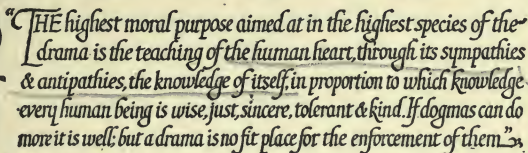 "THE highest moral purpose aimed at in the highest species of the
drama is the teaching of the human heart, through its sympathies
& antipathies, the knowledge of itself; in proportion to which knowledge
every human being is wise, just, sincere, tolerant & kind. If dogmas can do
more it is well: but a drama is no fit place for the enforcement of them."